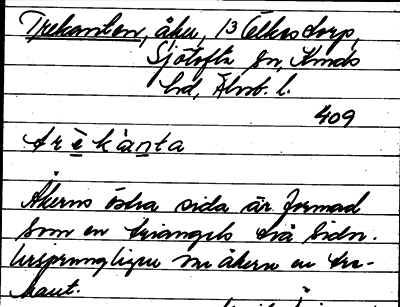 Trekanten, åker, 13 Ölkesdorp,
Sjötofta sn, Kinds
hd, Älvsb. l.
409
trèkànta
Åkerns östra sida är formad
som en triangels två sidor.
Ursprungligen var åkern en tre-
kant.